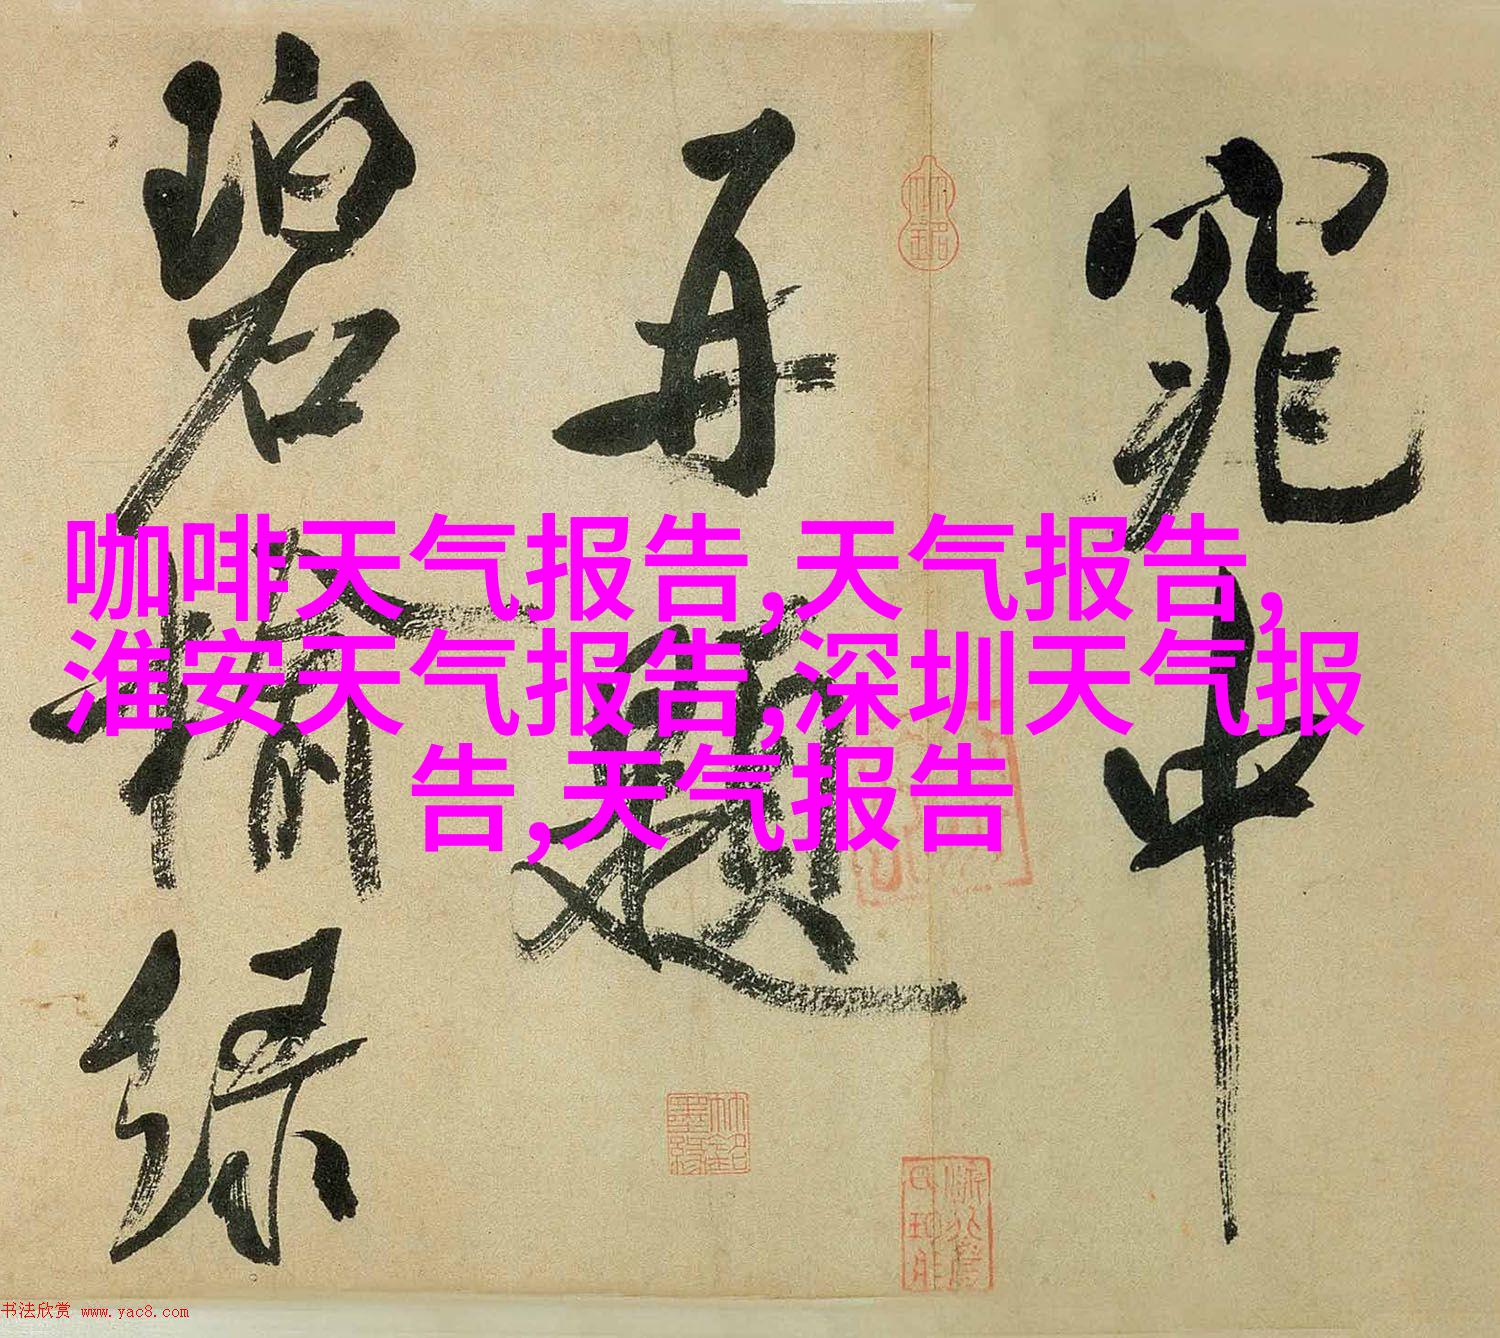 咖啡天气报告,天气报告,
淮安天气报告,深圳天气报
告,天气报告
窕中
再题
碧
绿
书法欣赏 www.yac8.com